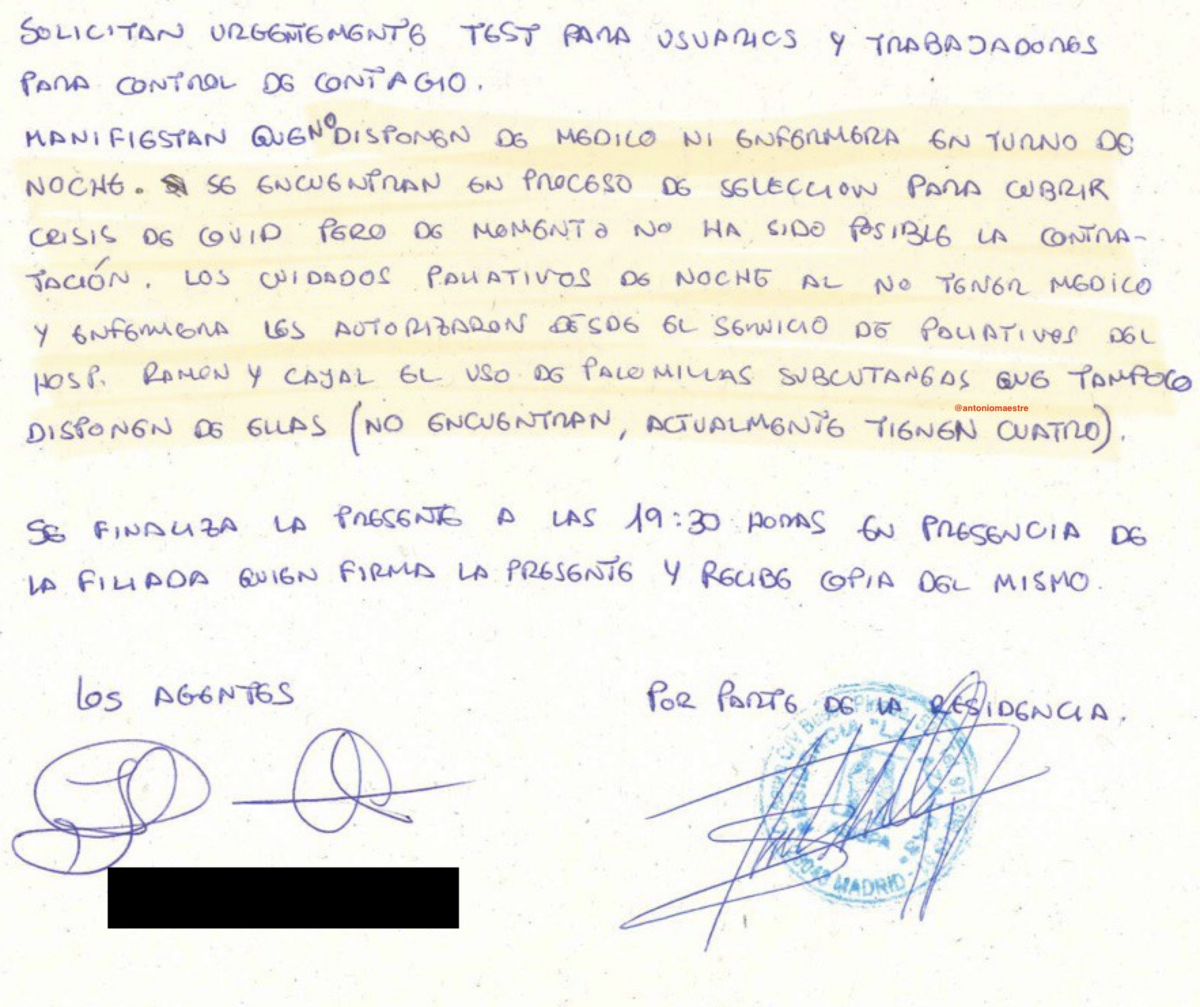 SOLICITAN URGENTEMENTE TEST PARA USUARIOS Y TRABAJADORES
PARA CONTROL DE CONTAGIO.
MANIFIESTAN QUE NO DISPONEN DE MEDICO NI ENFERMERA EN TURNO DE
NOCHE. SE ENCUENTRAN EN PROCESO DE SELECCION PARA CUBRIR
CRISIS DE COVID PERO DE MOMENTO NO HA SIDO POSIBLE LA CONTRA-
TACIÓN. LOS CUIDADOS PALIATIVOS DE NOCHE AL NO TENER MEDICO
Y ENFERMERA LES AUTORIZARON DESDE EL SERVICIO DE PALIATIVOS DEL
HOSP. RAMON Y CAJAL EL USO DE PALOMILLAS SUBCUTANEAS QUE TAMPOCO
@antoniomaestre
DISPONEN DE ELLAS (NO ENCUENTRAN, ACTUALMENTE TIENEN CUATRO).
SE FINALIZA LA PRESENTE A LAS 19:30 HORAS EN PRESENCIA DE
LA FILIADA QUIEN FIRMA LA PRESENTE Y RECIBE COPIA DEL MISMO.
LOS AGENTES
POR PARTE DE LA RESIDENCIA.
MADRID